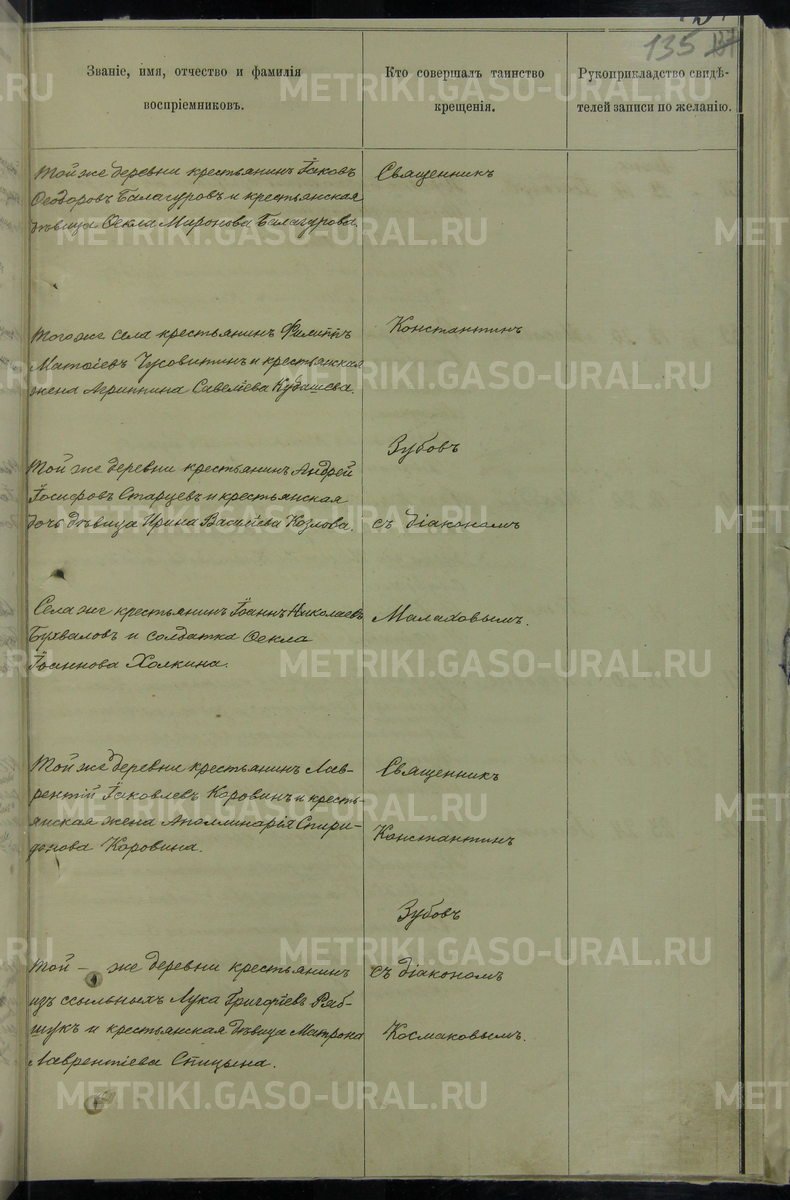 135
Званіе, имя, отчество и фамилія
воспріемниковъ.
Кто совершалъ таинство
крещенія.
Рукоприкладство свидѣ-
телей записи по желанію.
Той же деревни крестьянинъ Іаковъ
Ѳеодоровъ Балагуровъ и крестьянская
дѣвица Ѳекла Миронова Балагурова.
Того же села крестьянинъ Филиппъ
Матѳіевъ Чусовитинъ и крестьянская
жена Агриппина Савеліева Кудашева.
Той же деревни крестьянинъ Андрей
Іосифовъ Старцевъ и крестьянская
дочь дѣвица Ирина Василіева Козлова.
Села же крестьянинъ Іоаннъ Николаевъ
Бухваловъ и солдатка Ѳекла
Іоаннова Холкина.
Той же деревни крестьянинъ Лав-
рентій Іаковлевъ Коровинъ и кресть-
янская жена Аполлинарія Спири-
донова Коровина.
Той - же деревни крестьянинъ
изъ ссыльныхъ Лука Григоріевъ Раб-
щукъ и крестьянская дѣвица Матрона
Лаврентіева Спицына.
Священникъ
Константинъ
Зубовъ
съ діакономъ
Малаховымъ.
Священникъ
Константинъ
Зубовъ
съ діакономъ
Космаковымъ.
METRIKI.GASO-URAL.RU